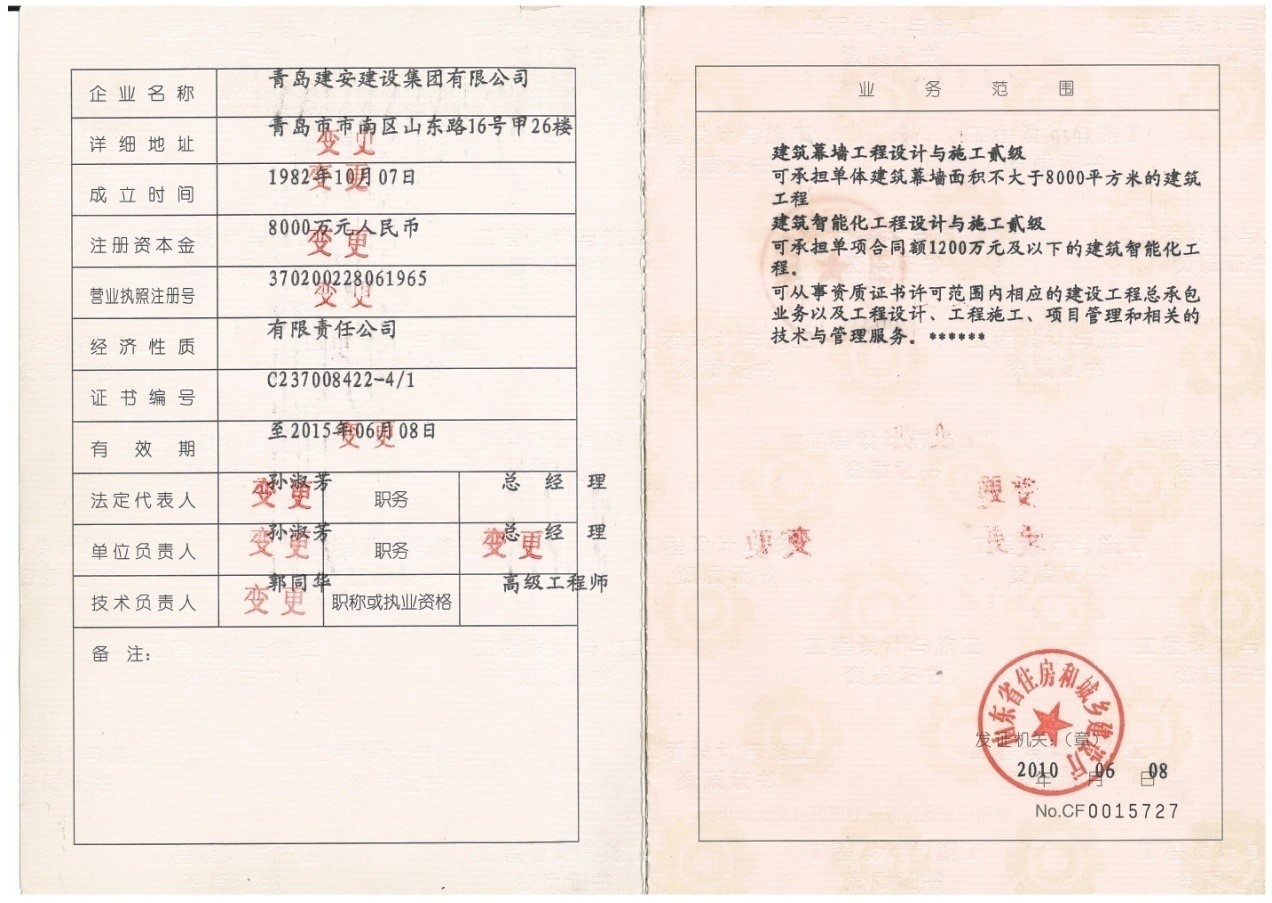 企业名称 青岛建安建设集团有限公司
详细地址 青岛市市南区山东路16号甲26楼
变更
变更
成立时间 1982年10月07日
注册资本金 8000万元人民币
变更
营业执照注册号 370200228061965
变更
经济性质 有限责任公司
证书编号 C237008422-4/1
有效期 至2015年06月08日
变更
法定代表人 孙淑芳 职务 总经理
变更
单位负责人 孙淑芳 职务 总经理
变更 变更
技术负责人 郭同华 职称或执业资格 高级工程师
变更
备注：
业务范围
建筑幕墙工程设计与施工贰级
可承担单体建筑幕墙面积不大于8000平方米的建筑
工程
建筑智能化工程设计与施工贰级
可承担单项合同额1200万元及以下的建筑智能化工
程。
可从事资质证书许可范围内相应的建设工程总承包
业务以及工程设计、工程施工、项目管理和相关的
技术与管理服务。******
山东省住房和城乡建设厅
发证机关：（章）
2010年06月08日
No.CF0015727